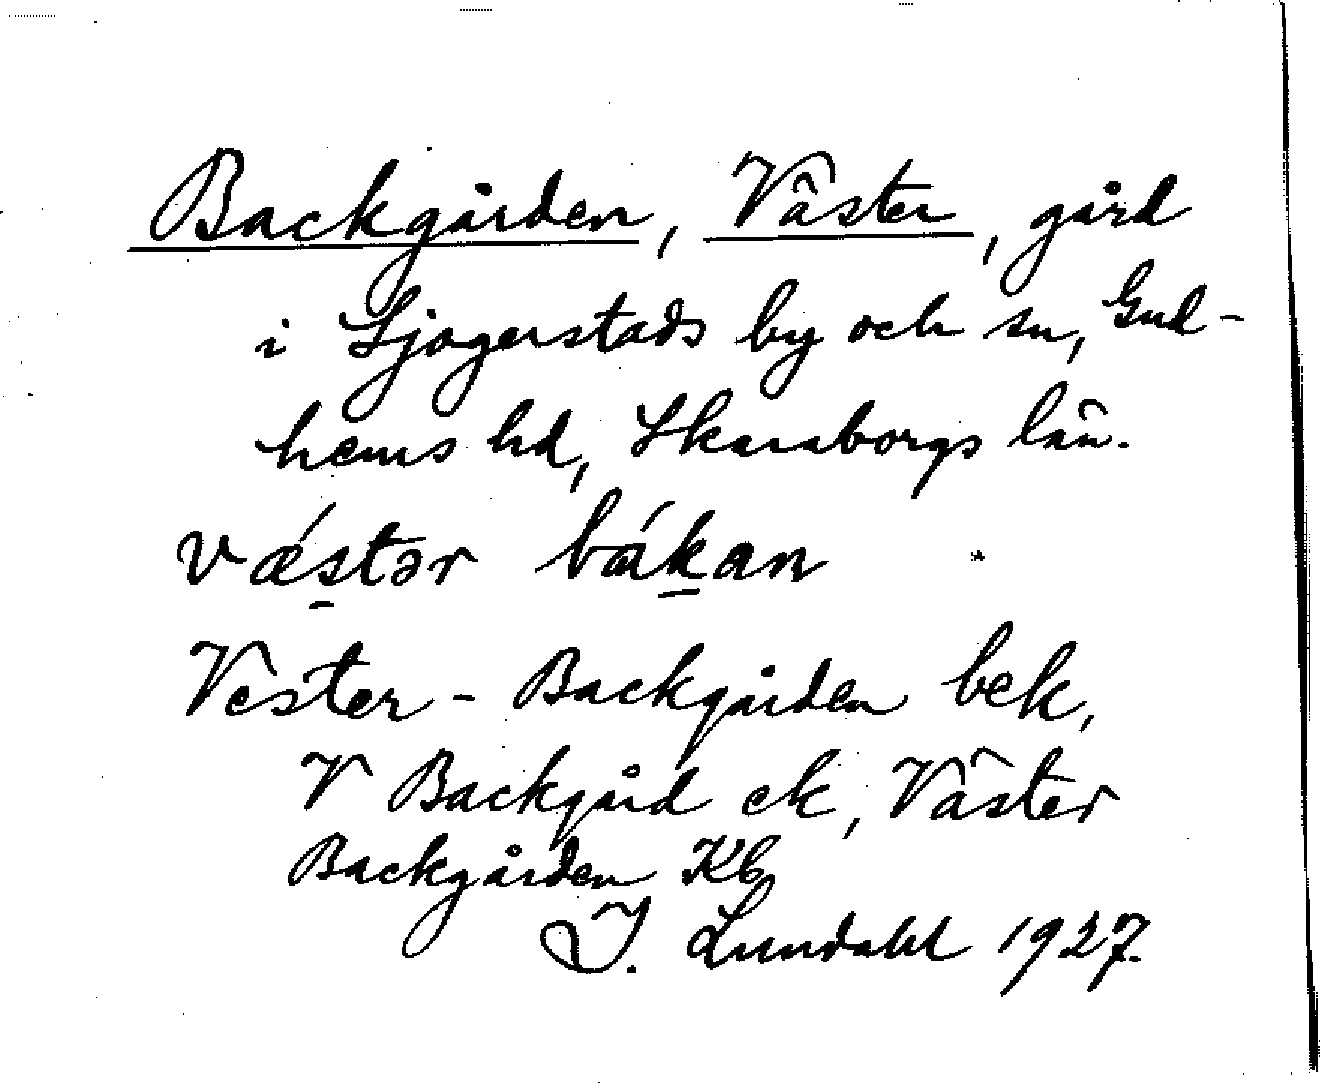 Backgården, Väster, gård
i Sjogerstads by och sn, Gud-
hems hd, Skaraborgs län.
vǽs̠tər bák̠an
Vester-Backgården bek,
V Backgård ek, Väster
Backgården Kb
I. Lundahl 1927.